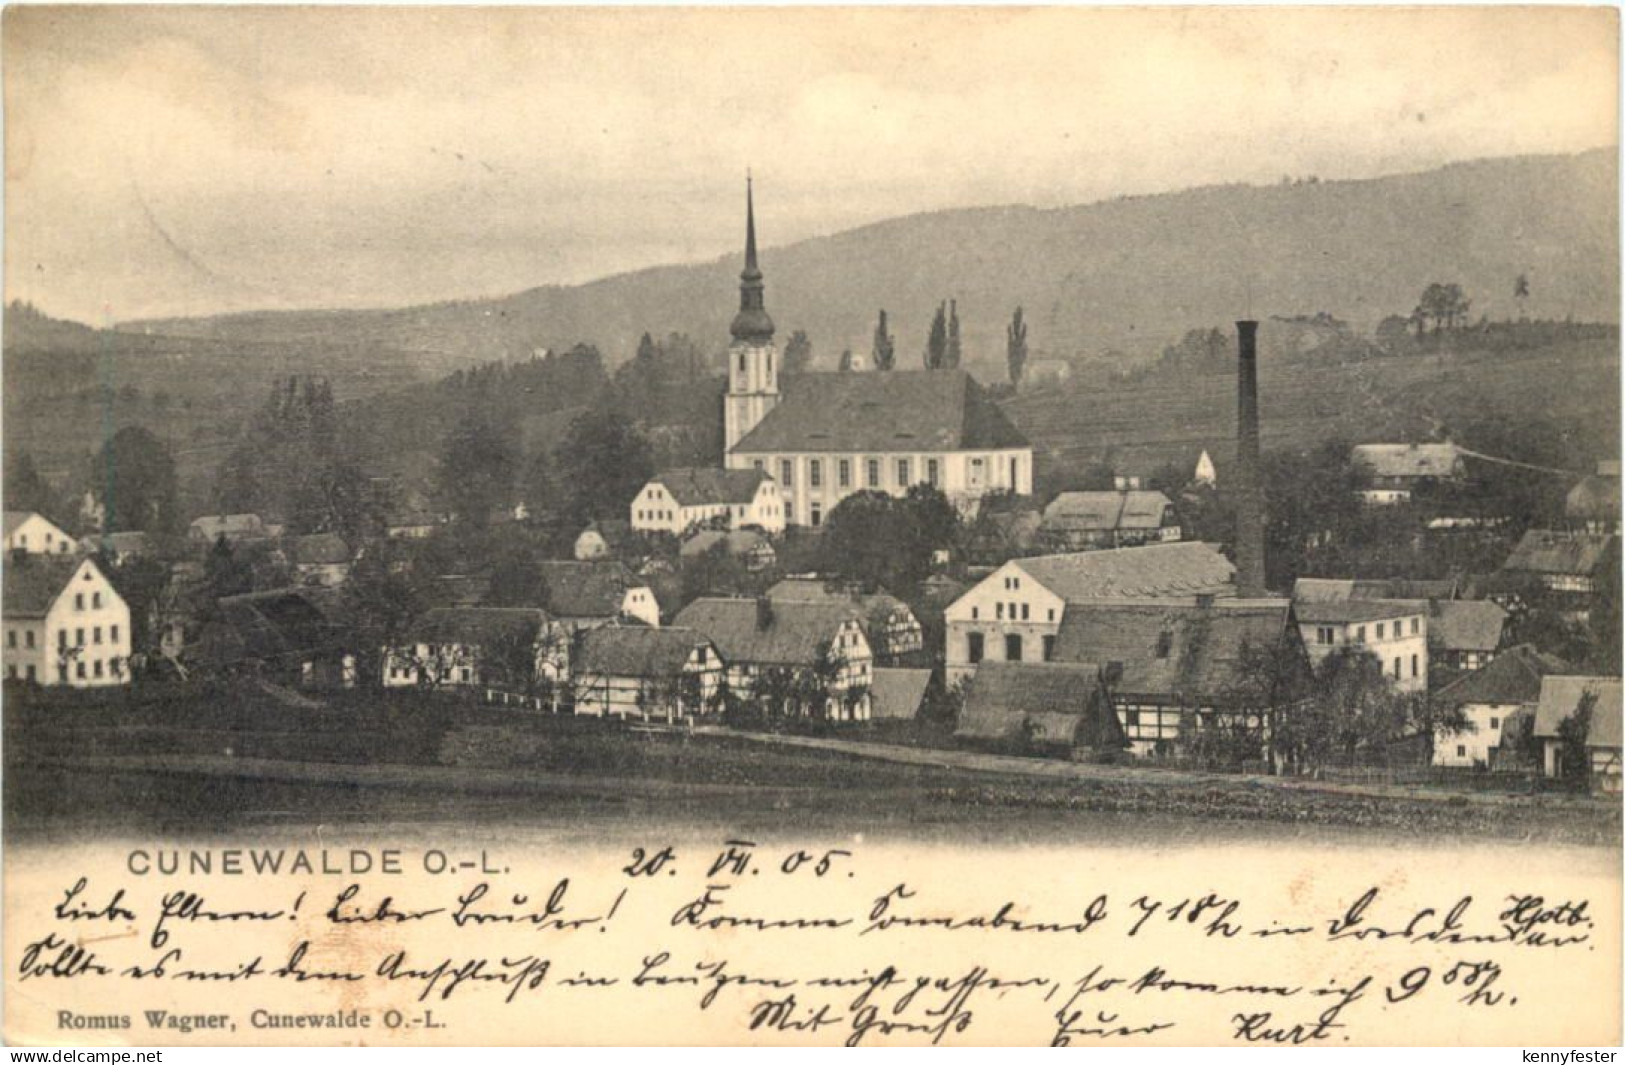 CUNEWALDE O.-L. 20. VII. 05.
Liebe Eltern! Lieber Bruder! Komme Sonnabend 7 18 h in Dresden Hptb. an.
Sollte es mit dem Anschluß in Bautzen nicht passen, so komme ich 9 58 h.
Mit Gruß Euer Kurt.
Romus Wagner, Cunewalde O.-L.
www.delcampe.net
kennyfester